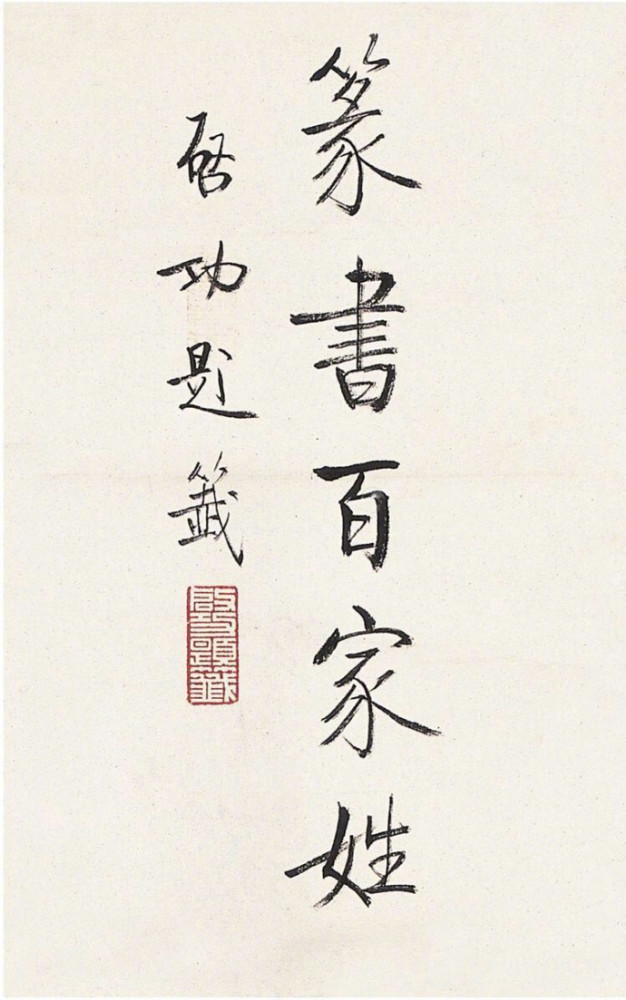 篆書百家姓
启功题籤
啟功題籤